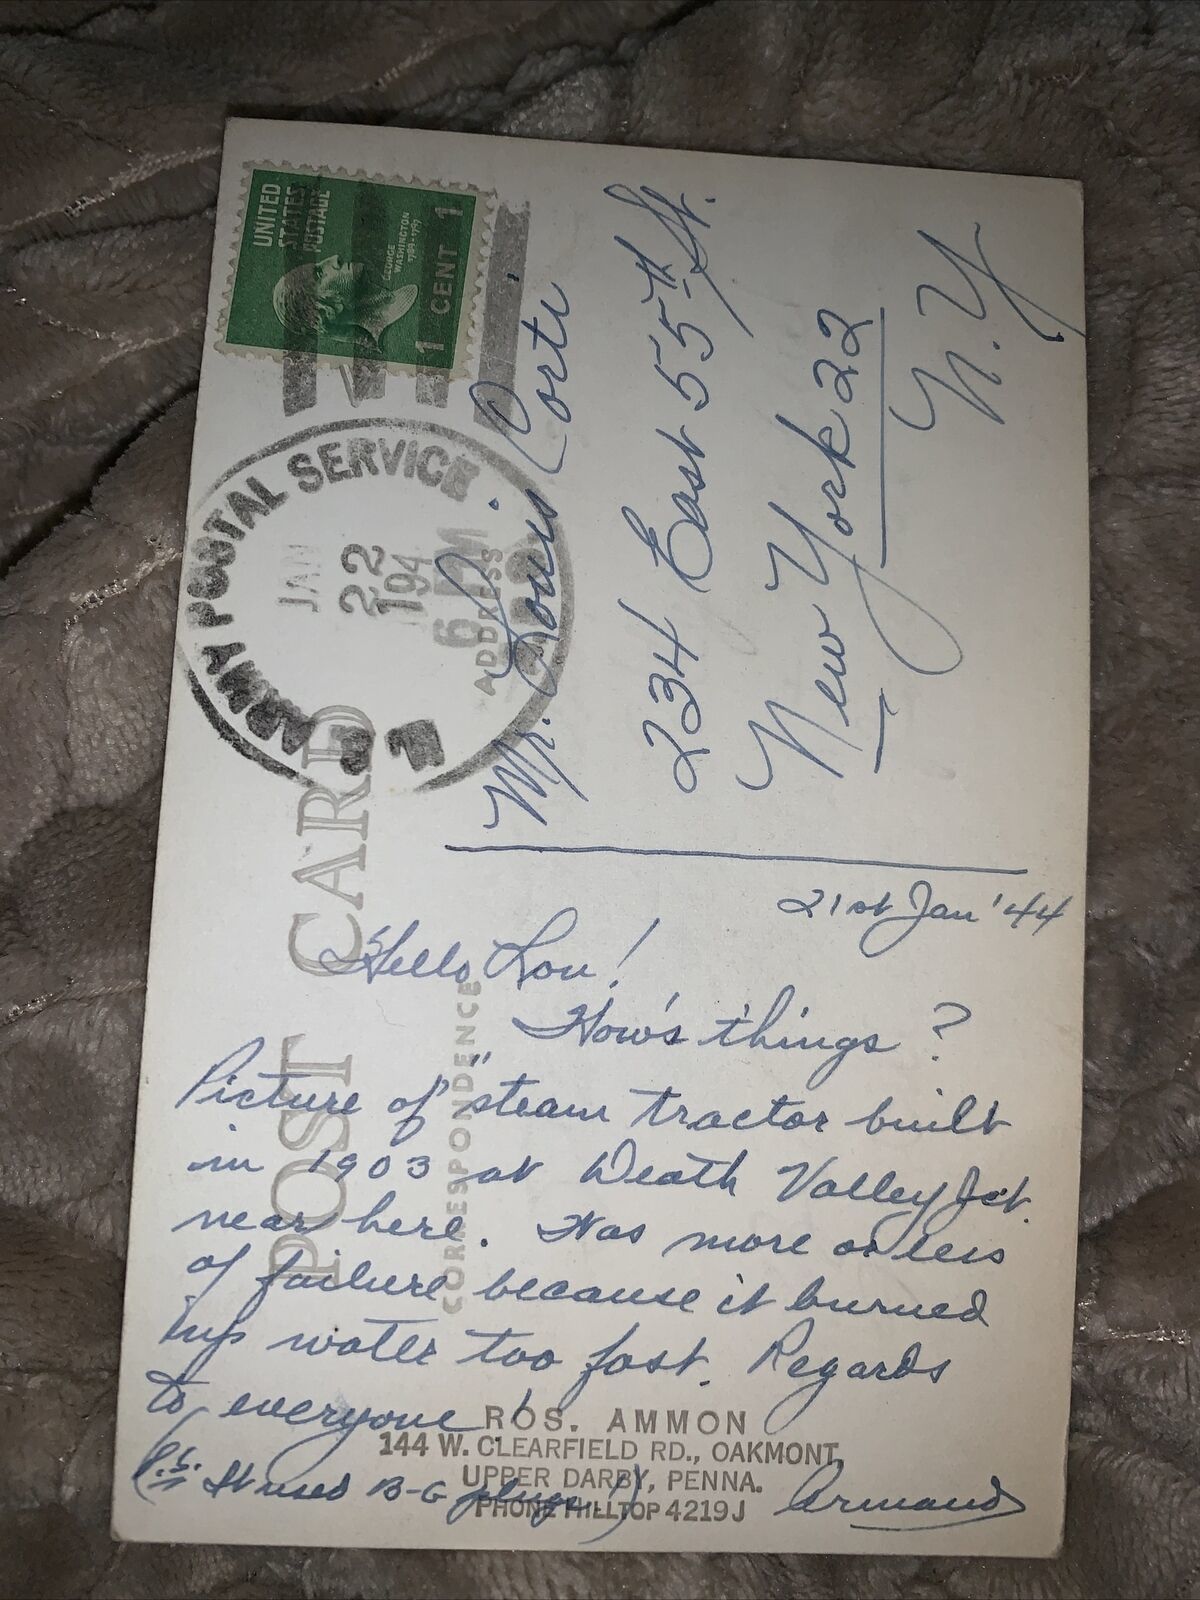 UNITED
STATES
POSTAGE
GEORGE
WASHINGTON
1789-1797
1 CENT 1
ARMY POSTAL SERVICE
JAN
22
194
6 PM
ADDRESS
Mr. Louis Corti
234 East 55th St.
New York 22
N.Y.
POST CARD
CORRESPONDENCE
21st Jan '44
Hello Lou!
How's things?
Picture of "steam tractor built
in 1903 at Death Valley Jct.
near here. Was more or less
of failure because it burned
up water too fast. Regards
to everyone!
(P.S. It used B-G plugs.!)
Armand
ROS. AMMON
144 W. CLEARFIELD RD., OAKMONT,
UPPER DARBY, PENNA.
PHONE HILLTOP 4219J